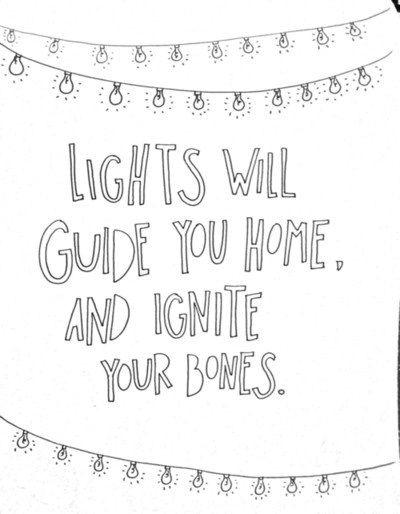 LIGHTS WILL
GUIDE YOU HOME,
AND IGNITE
YOUR BONES.